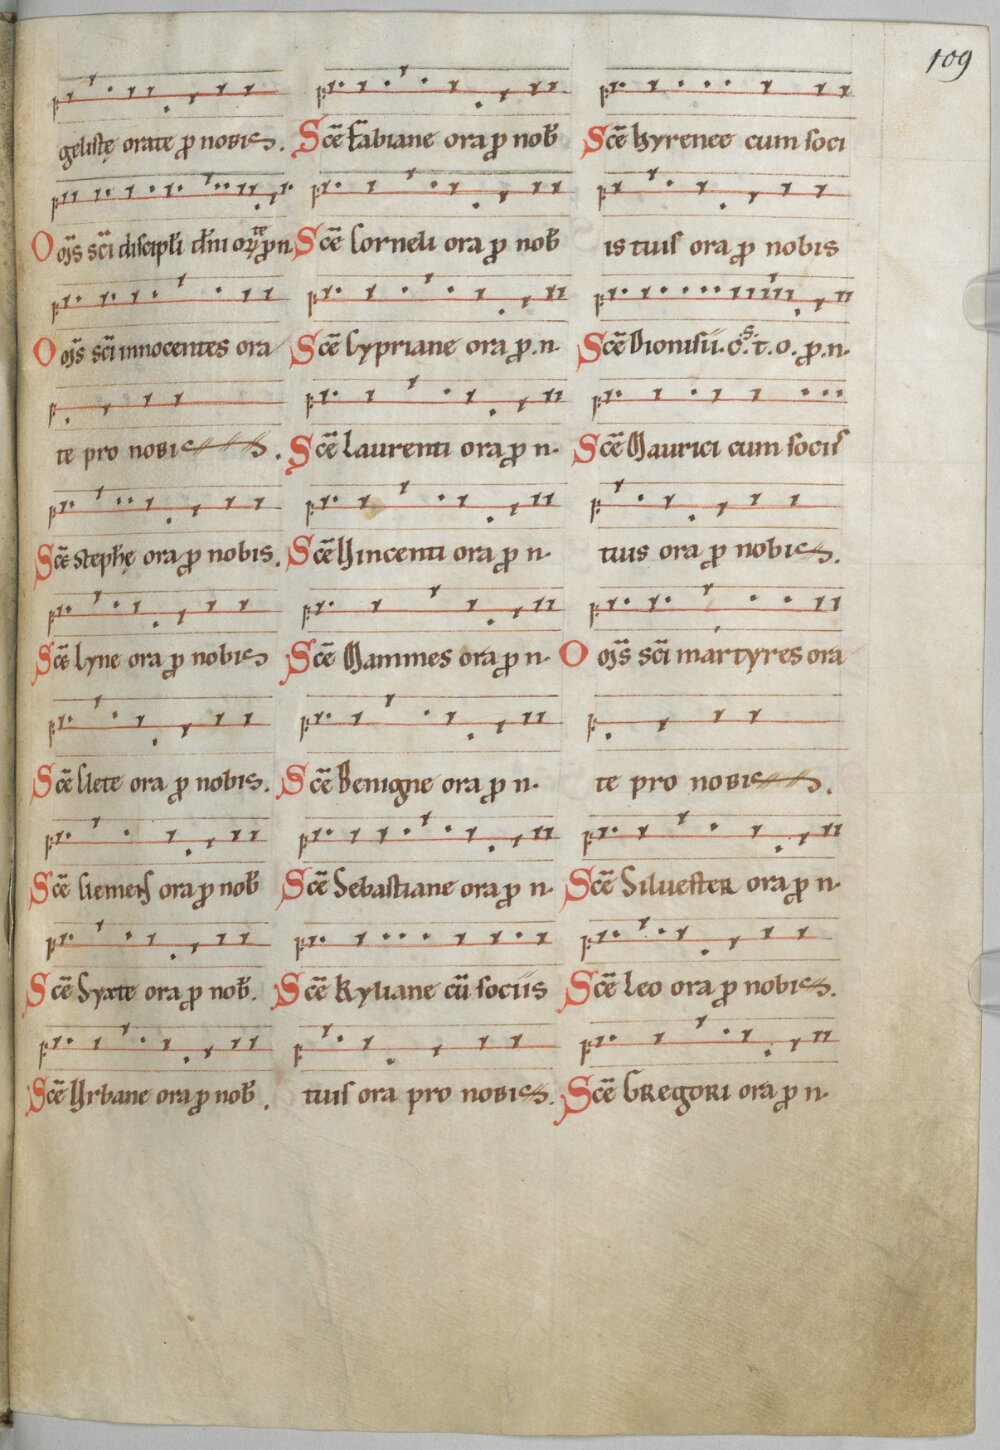 109
gelistę orate ꝓ nobis.
O om̄s sc̄i discipl̄i dn̄i orate ꝓ n.
O om̄s sc̄i innocentes ora
te pro nobis.
Sc̄e stephę ora ꝓ nobis.
Sc̄e Lyne ora ꝓ nobis
Sc̄e Clete ora ꝓ nobis.
Sc̄e Clemens ora ꝓ nob̄
Sc̄e Syxte ora ꝓ nob̄.
Sc̄e Vrbane ora ꝓ nob̄.
Sc̄e Fabiane ora ꝓ nob̄
Sc̄e Corneli ora ꝓ nob̄
Sc̄e Cypriane ora ꝓ. n.
Sc̄e Laurenti ora ꝓ n.
Sc̄e Vincenti ora ꝓ n.
Sc̄e Mammes ora ꝓ n.
Sc̄e Benigne ora ꝓ n.
Sc̄e Sebastiane ora ꝓ n.
Sc̄e Kyliane cū sociis
tuis ora pro nobis.
Sc̄e hyrenee cum soci
is tuis ora ꝓ nobis
Sc̄e Dionisii. c. s. t. o. ꝓ. n.
Sc̄e Maurici cum sociis
tuis ora ꝓ nobis.
O om̄s sc̄i martyres ora
te pro nobis.
Sc̄e Siluester ora ꝓ n.
Sc̄e Leo ora ꝓ nobis.
Sc̄e Gregori ora ꝓ n.